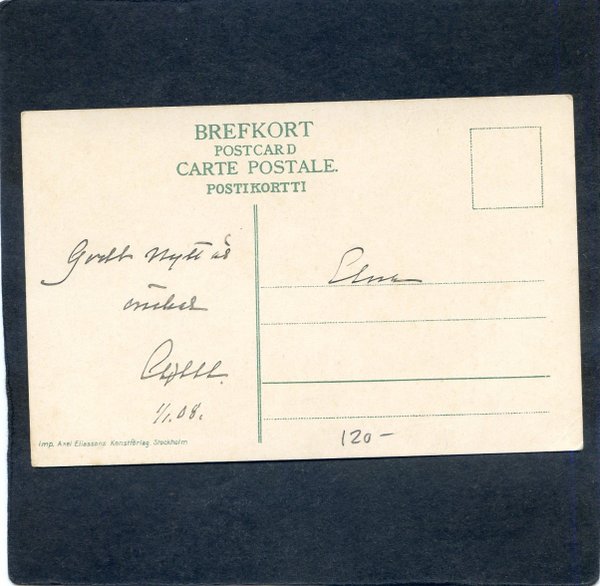 BREFKORT
POSTCARD
CARTE POSTALE.
POSTIKORTTI
Godt Nytt år
önskar
1/1.08.
Elna
120-
Imp. Axel Eliassons Konstförlag. Stockholm